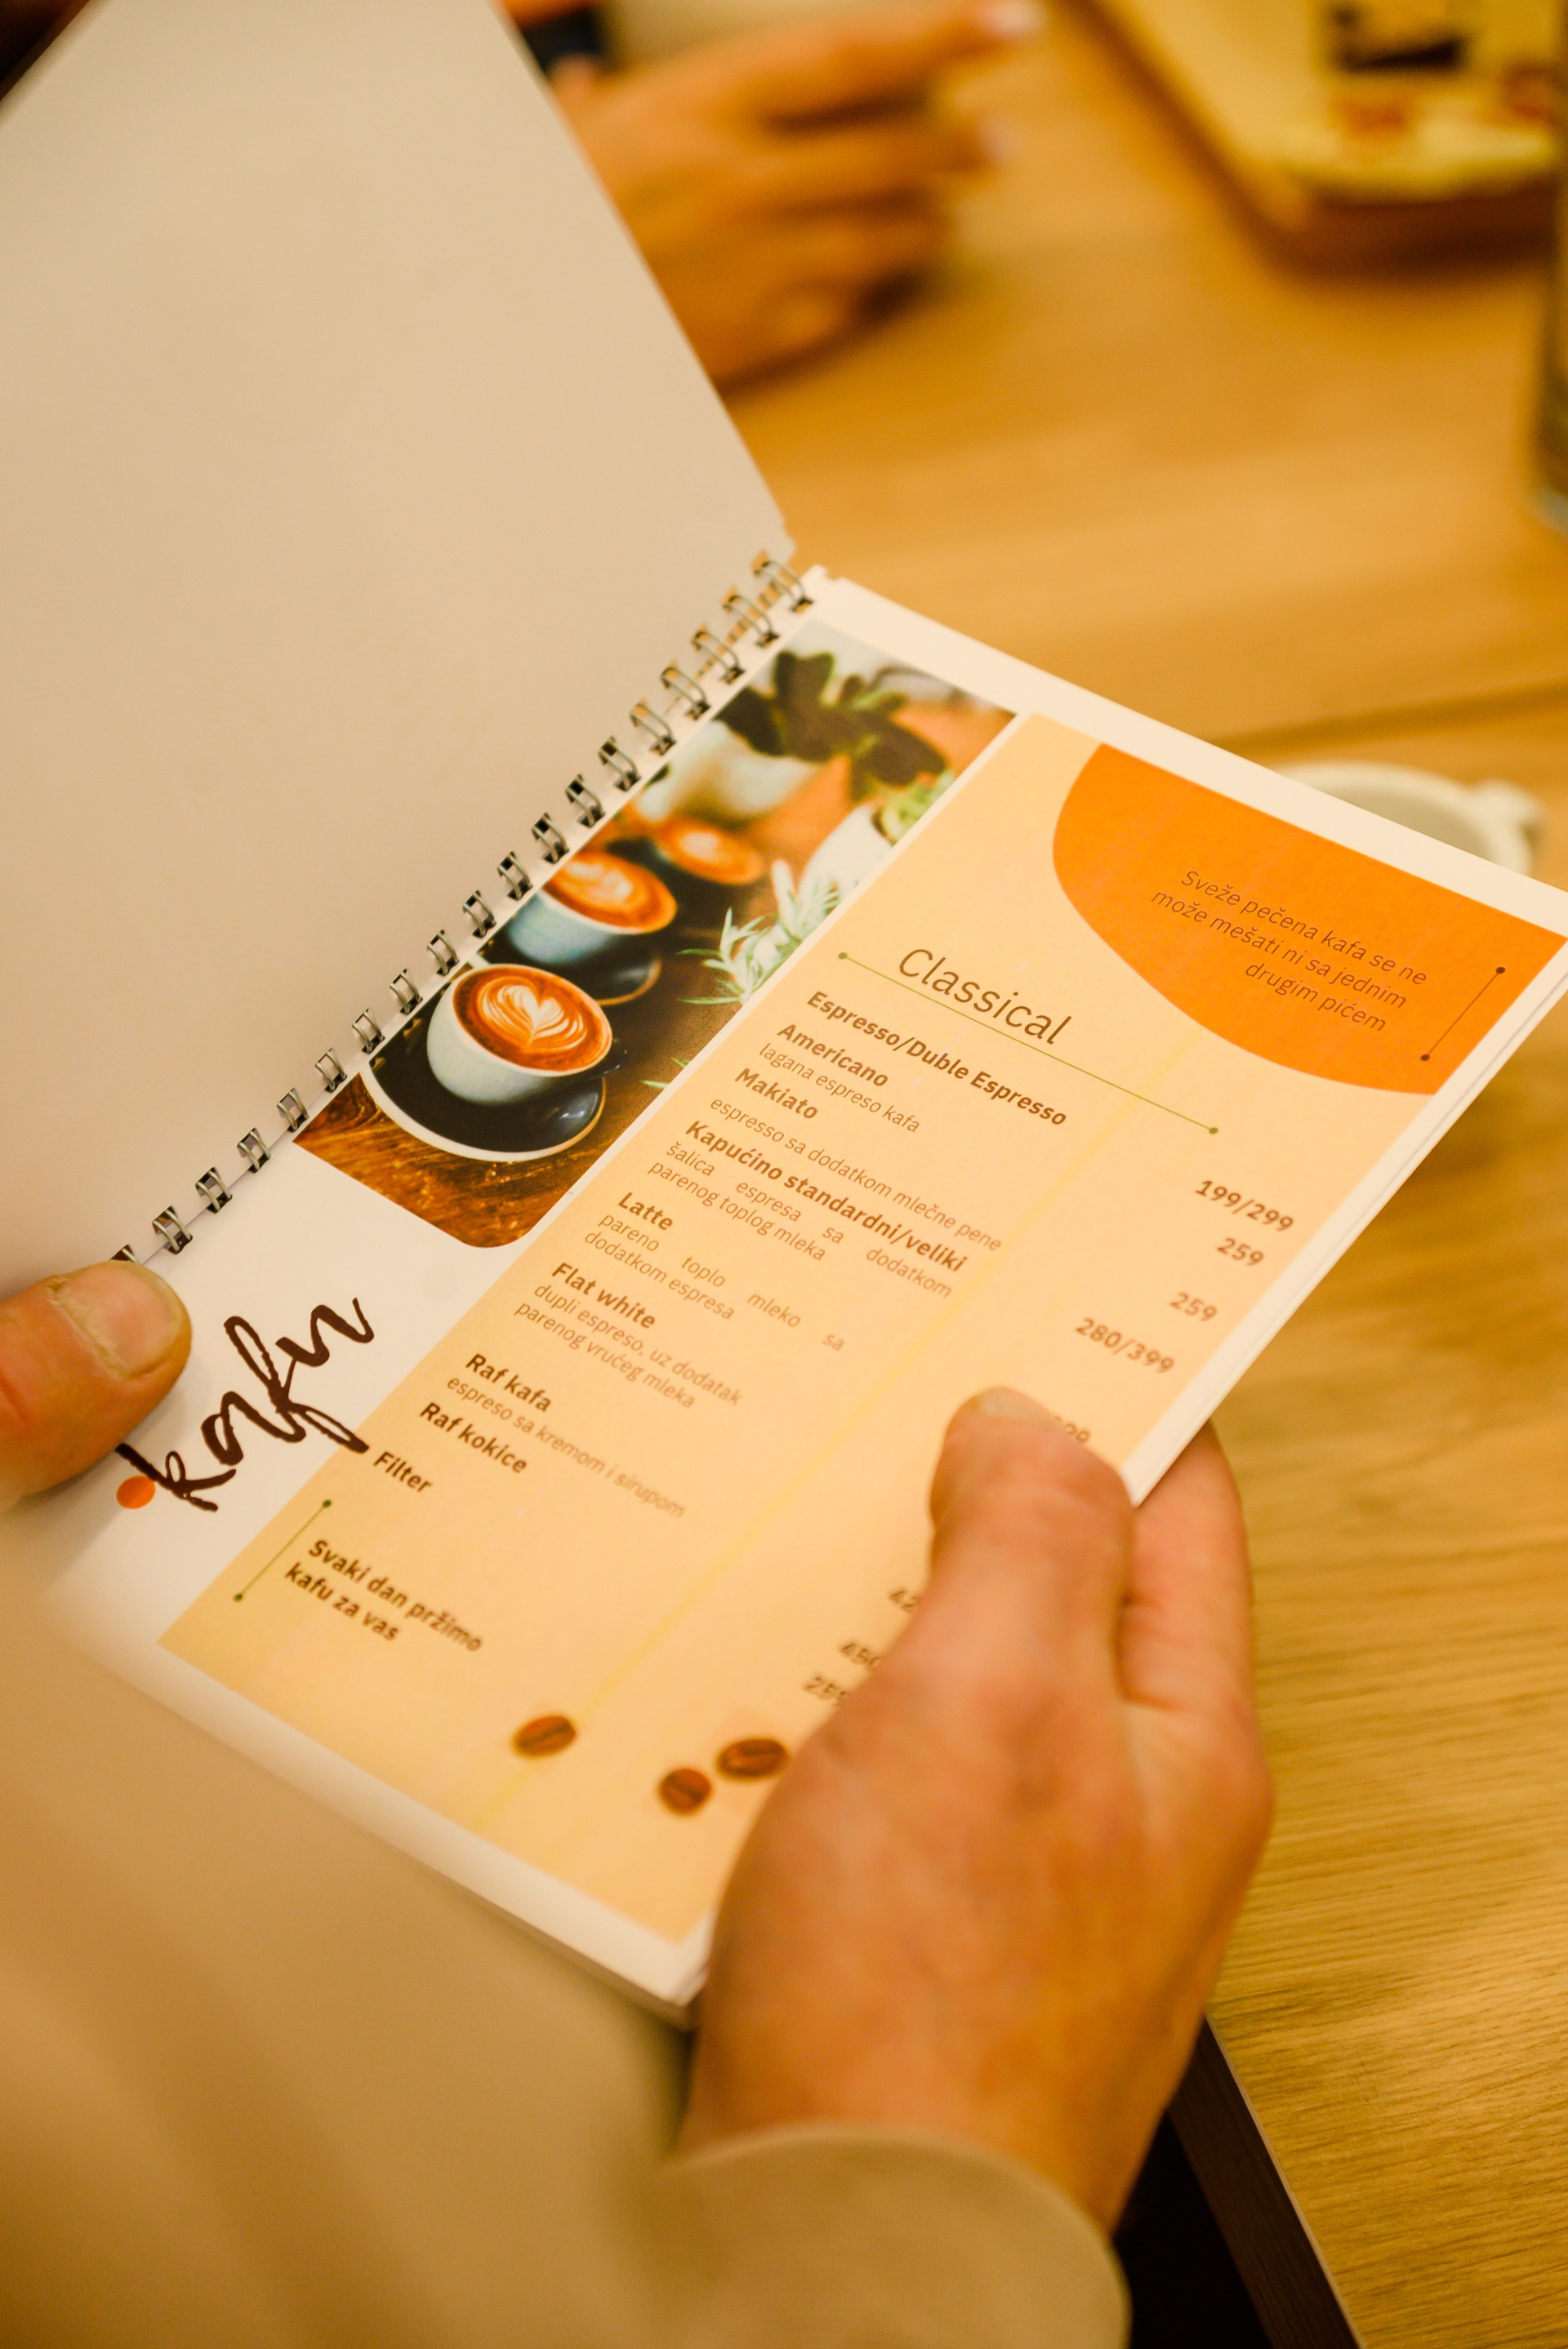 Sveže pečena kafa se ne
može mešati ni sa jednim
drugim pićem
Classical
Espresso/Duble Espresso
199/299
Americano
259
lagana espreso kafa
Makiato
259
espresso sa dodatkom mlečne pene
Kapućino standardni/veliki
280/399
šalica espresa sa dodatkom
parenog toplog mleka
Latte
pareno toplo mleko sa
dodatkom espresa
Flat white
dupli espreso, uz dodatak
parenog vrućeg mleka
Raf kafa
espreso sa kremom i sirupom
Raf kokice
Filter
Svaki dan pržimo
kafu za vas
kafu